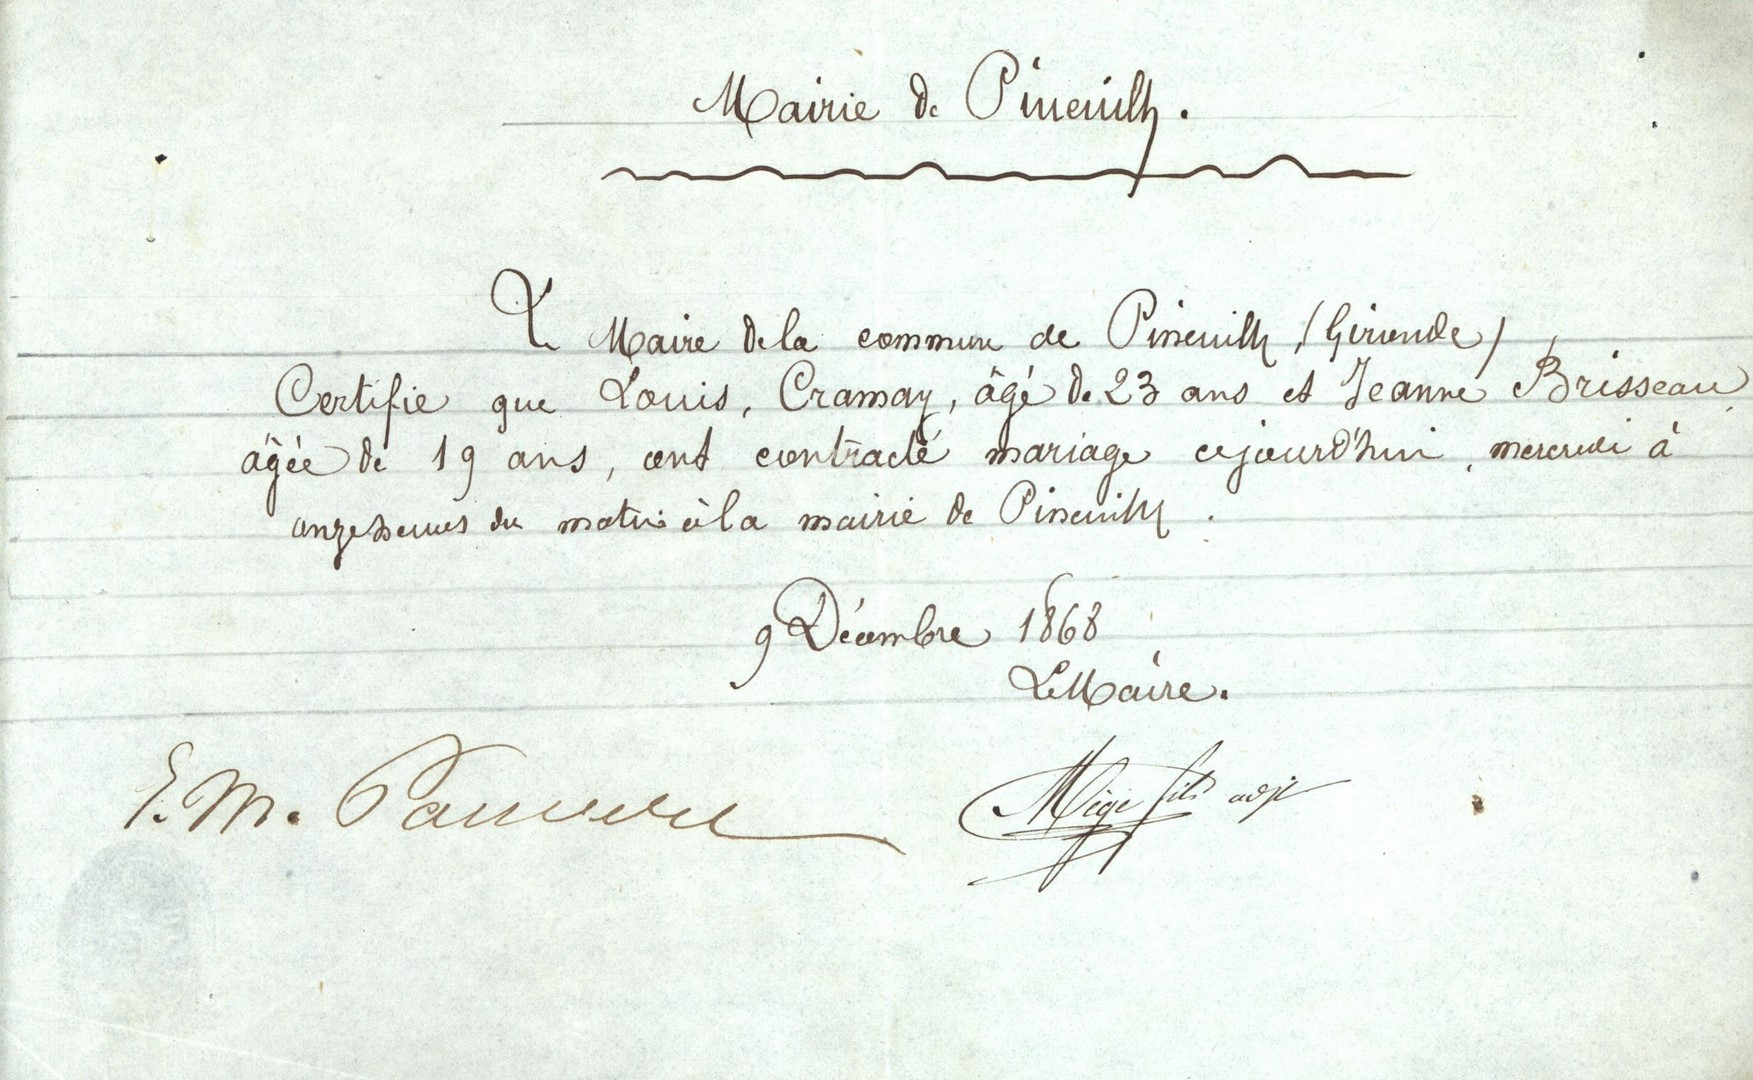 Mairie de Pineuilh.
Le Maire de la commune de Pineuilh (Gironde)
Certifie que Louis, Cramay, âgé de 23 ans et Jeanne Brisseau,
âgée de 19 ans, ont contracté mariage cejourd'hui, mercredi à
onze heures du matin à la mairie de Pineuilh.
9 Décembre 1868
Le Maire.
E. M.
Mège fils adjt